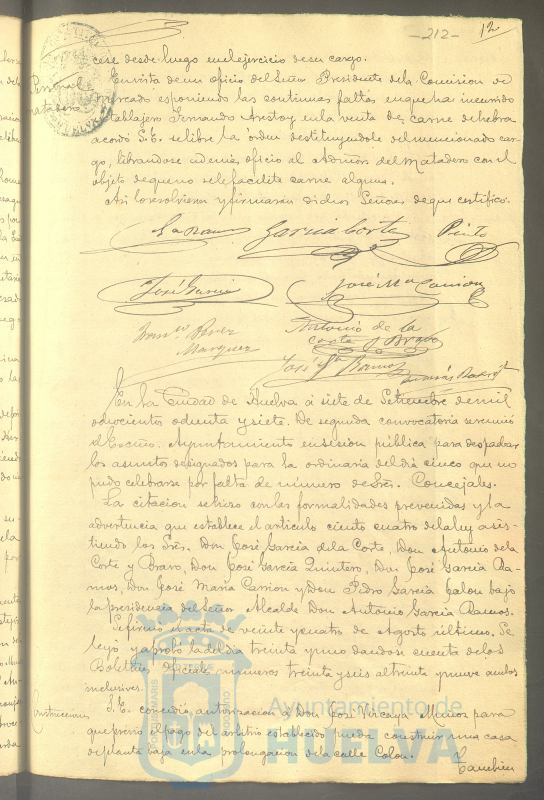 -212-
12
cese desde luego en el ejercicio de su cargo.
Personal
matadero
En vista de un oficio del Señor Presidente de la Comision de
mercado esponiendo las continuas faltas en que ha incurrido
el tablajero Fernando Arestoy en la venta de carne de hebra
acordó S.E. se libre la órden destituyendole del mencionado car-
go, librandose además oficio al Admor. del Matadero con el
objeto de que no se le facilite carne alguna.
Asi lo resolvieron y firmaran dichos Señores de que certifico.
Garcia Corte Pinto
José Garcia José Mª Carrion
Perez
Marquez
Antonio de la
Corte y Bravo
José Gª Ramos
En la Ciudad de Huelva á siete de Setiembre de mil
ochocientos ochenta y siete. De segunda convocatoria se reunió
el Excmo. Ayuntamiento en sesion pública para despachar
los asuntos designados para la ordinaria del dia cinco que no
pudo celebrarse por falta de número de Sres. Concejales.
La citacion se hizo con las formalidades prevenidas y la
advertencia que establece el articulo ciento cuatro de la ley asis-
tiendo los Sres. Don José Garcia de la Corte, Don Antonio de la
Corte y Bravo, Don José Garcia Quintero, Don José Garcia Ra-
mos, Don José Maria Carrion y Don Pedro Garcia Jalon bajo
la presidencia del Señor Alcalde Don Antonio Garcia Ramos.
Se firmó el acta de veinte y cuatro de Agosto último. Se
leyó y aprobó la del dia treinta y uno dandose cuenta de los
Boletines oficiales números treinta y seis al treinta y nueve ambos
inclusives.
Construcciones
S.E. concedió autorizacion á Don José Vizcaya Muñoz para
que previo el pago del arbitrio establecido pueda construir una casa
de planta baja en la prolongacion de la calle Colon.
Tambien
Ayuntamiento de
HUELVA